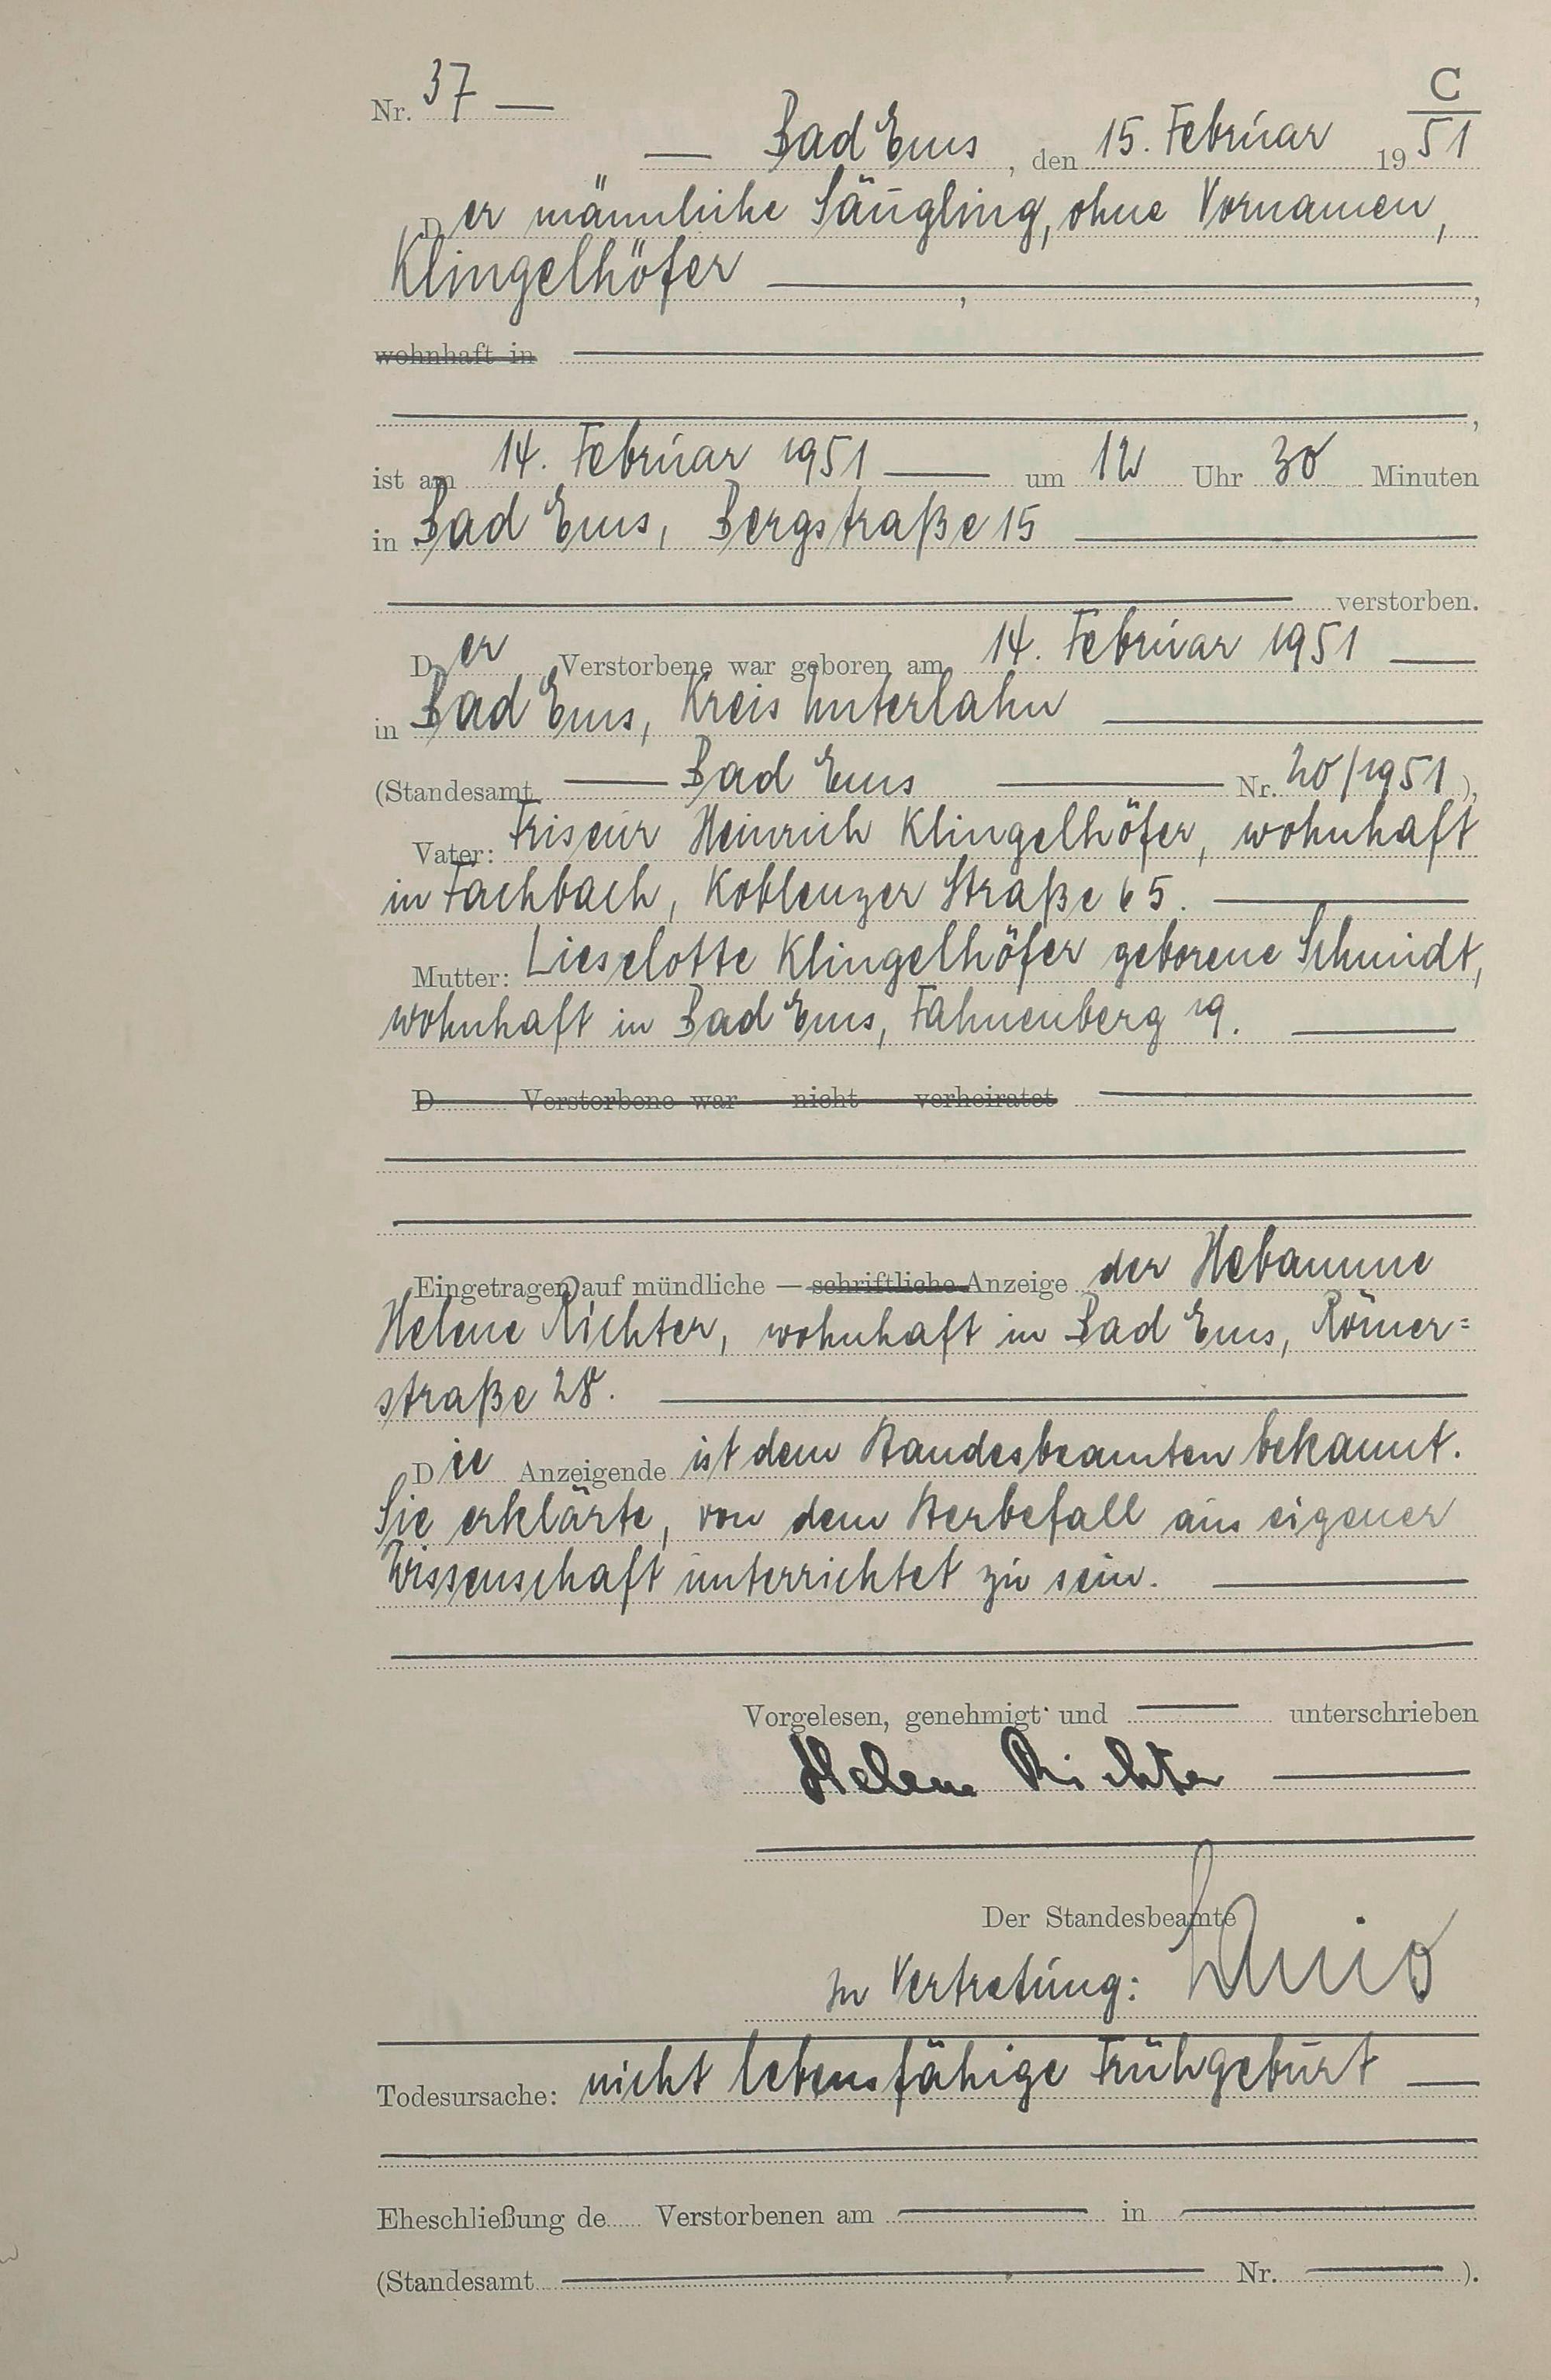 C
Nr. 37 —
— Bad Ems, den 15. Februar 1951
Der männliche Säugling, ohne Vornamen,
Klingelhöfer —, —,
wohnhaft in —
—,
ist am 14. Februar 1951 — um 12 Uhr 30 Minuten
in Bad Ems, Bergstraße 15 —
— verstorben.
Der Verstorbene war geboren am 14. Februar 1951 —
in Bad Ems, Kreis Unterlahn —
(Standesamt — Bad Ems — Nr. 20/1951),
Vater: Friseur Heinrich Klingelhöfer, wohnhaft
in Fachbach, Koblenzer Straße 65. —
Mutter: Lieselotte Klingelhöfer geborene Schmidt,
wohnhaft in Bad Ems, Fahnenberg 19. —
D Verstorbene war nicht verheiratet —
Eingetragen auf mündliche — schriftliche Anzeige der Hebamme
Helene Richter, wohnhaft in Bad Ems, Römer=
straße 28. —
Die Anzeigende ist dem Standesbeamten bekannt.
Sie erklärte, von dem Sterbefall aus eigener
Wissenschaft unterrichtet zu sein. —
Vorgelesen, genehmigt und — unterschrieben
Helene Richter —
Der Standesbeamte
In Vertretung:
Todesursache: nicht lebensfähige Frühgeburt —
Eheschließung de Verstorbenen am — in —
(Standesamt — Nr. —).